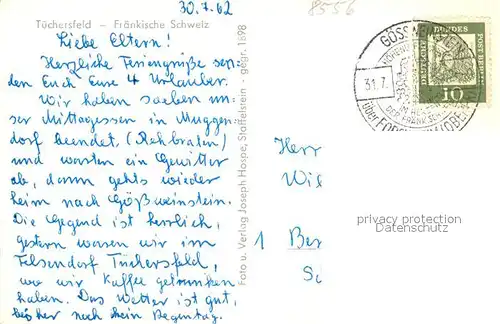 30.7.62
8556
Tüchersfeld – Fränkische Schweiz
Liebe Eltern!
Herzliche Feriengrüße sen-
den Euch Eure 4 Urlauber.
Wir haben soeben un-
ser Mittagessen in Muggen-
dorf beendet, (Rehbraten)
und warten ein Gewitter
ab, dann gehts wieder
heim nach Gößweinstein.
Die Gegend ist herrlich,
gestern waren wir im
Felsendorf Tüchersfeld,
wo wir Kaffee getrunken
haben. Das Wetter ist gut,
bisher noch kein Regentag.
Foto u. Verlag Joseph Hospe, Staffelstein - gegr. 1898
31.7.
über
DEUTSCHE
BUNDES
POST BERLIN
10
Herr
Wil
1 Ber
privacy protection
Datenschutz